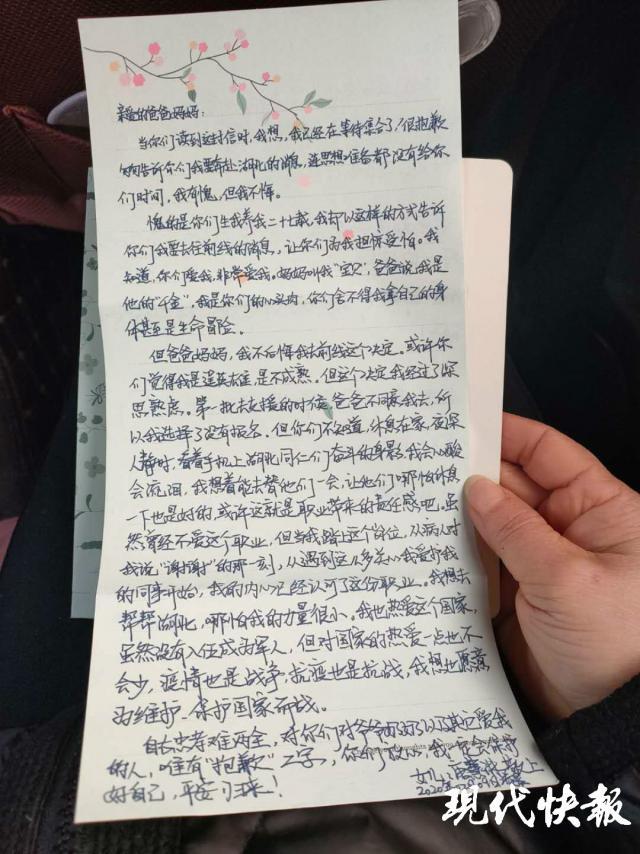 亲爱的爸爸妈妈：
当你们读到这封信时，我想，我已经在等待集合了！很抱歉
匆匆告诉你们我要奔赴湖北的消息，连思想准备都没有给你
们时间，我有愧，但我不悔。
愧的是你们生我养我二十七载，我却以这样的方式告诉
你们我要去往前线的消息，让你们为我担惊受怕。我
知道，你们爱我，非常爱我。妈妈叫我“宝贝”，爸爸说我是
他的“千金”，我是你们的心头肉，你们会不得我拿自己的身
体甚至是生命冒险。
但爸爸妈妈，我不后悔我去前线这个决定。或许你
们觉得我是逞英雄，是不成熟。但这个决定我经过了深
思熟虑。第一批去支援的时候，爸爸不同意我去，所
以我选择了没有报名。但你们不知道，休息在家，夜深
人静时，看着手机上湖北同仁们奋斗的身影，我会心酸
会流泪，我想着能去替他们一会，让他们哪怕休息
一下也是好的，或许这就是职业带来的责任感吧。虽
然曾经不爱这个职业，但当我踏上这个岗位，从病人对
我说“谢谢”的那一刻，从遇到这么多关心我爱护我
的同事开始，我的内心已经认可了这份职业。我想去
帮帮湖北，哪怕我的力量很小。我也热爱这个国家，
虽然没有入伍成为军人，但对国家的热爱一点也不
会少，疫情也是战争，抗疫也是抗战，我想也愿意
为维护、保护国家而战。
自古忠孝难两全，对你们对爷爷奶奶以及其它爱我
的人，唯有“抱歉”二字，你们放心，我一定会保护
好自己，平安归来！
女儿
敬上
2020年
现代快报